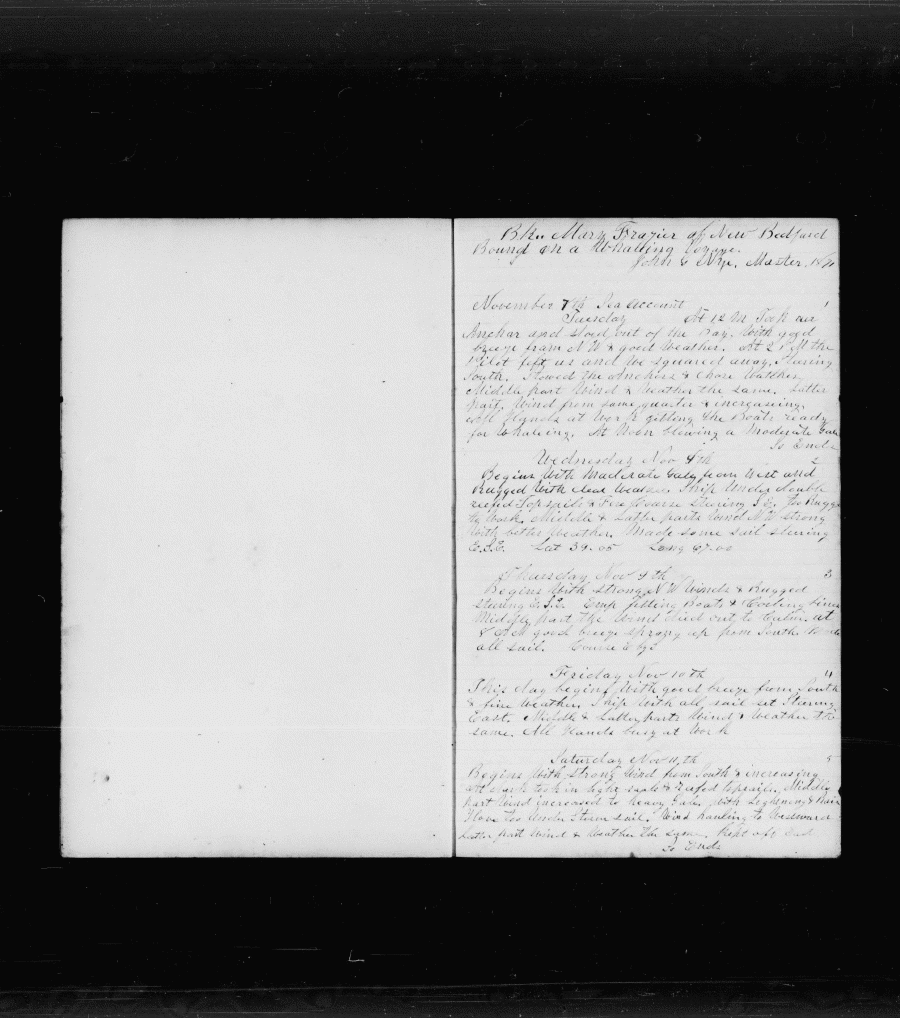 Bkn. Mary Frazier of New Bedford
Bound on a Whaling Voyage.
John Nye. Master.
1
November 7th Sea account
Tuesday At 12 M Took our
Anchor and stood out of the Bay. With good
breeze from N W & good Weather. At 2 PM the
Pilot left us and We squared away. Steering
South. Stowed the Anchors & Chose Watches.
Middle part Wind & Weather the same. Latter
part. Wind from same quarter & increasing.
all Hands at Work gitting the Boats ready
for Whaleing. At Noon blowing a Moderate Gale
So Ends
Wednesday Nov 8th 2
Begins With Moderate Gale from West and
Rugged With clear Weather. Ship Under double
reefed Topsails & Steering S.E. Too Rugged
to Work. Middle & Latter parts Wind N W strong
With better Weather. Made some sail steering
E.S.E. Lat 39.05 Long 67.00
Thursday Nov 9th 3
Begins With strong N W Winds & Rugged
steering E.S.E. Emp fitting Boats & Coileing Lines
Middle part the Wind died out to Calm. at
8 good breeze sprang up from South
all sail. Course E by S
Friday Nov 10th 4
This day begins With good breeze from South
& fine Weather. Ship With all sail set Steering
East. Middle & Latter parts Wind & Weather the
same. All Hands busy at Work
Saturday Nov 11th 5
Begins With strong Wind from South & increasing
At dark took in light sails & reefed topsails. Middle
part Wind increased to heavy Gale With Lightening & Rain
Hove too Under Storm sail. Wind hauling to Westward
Latter part Wind & Weather the same. Kept off East
So Ends